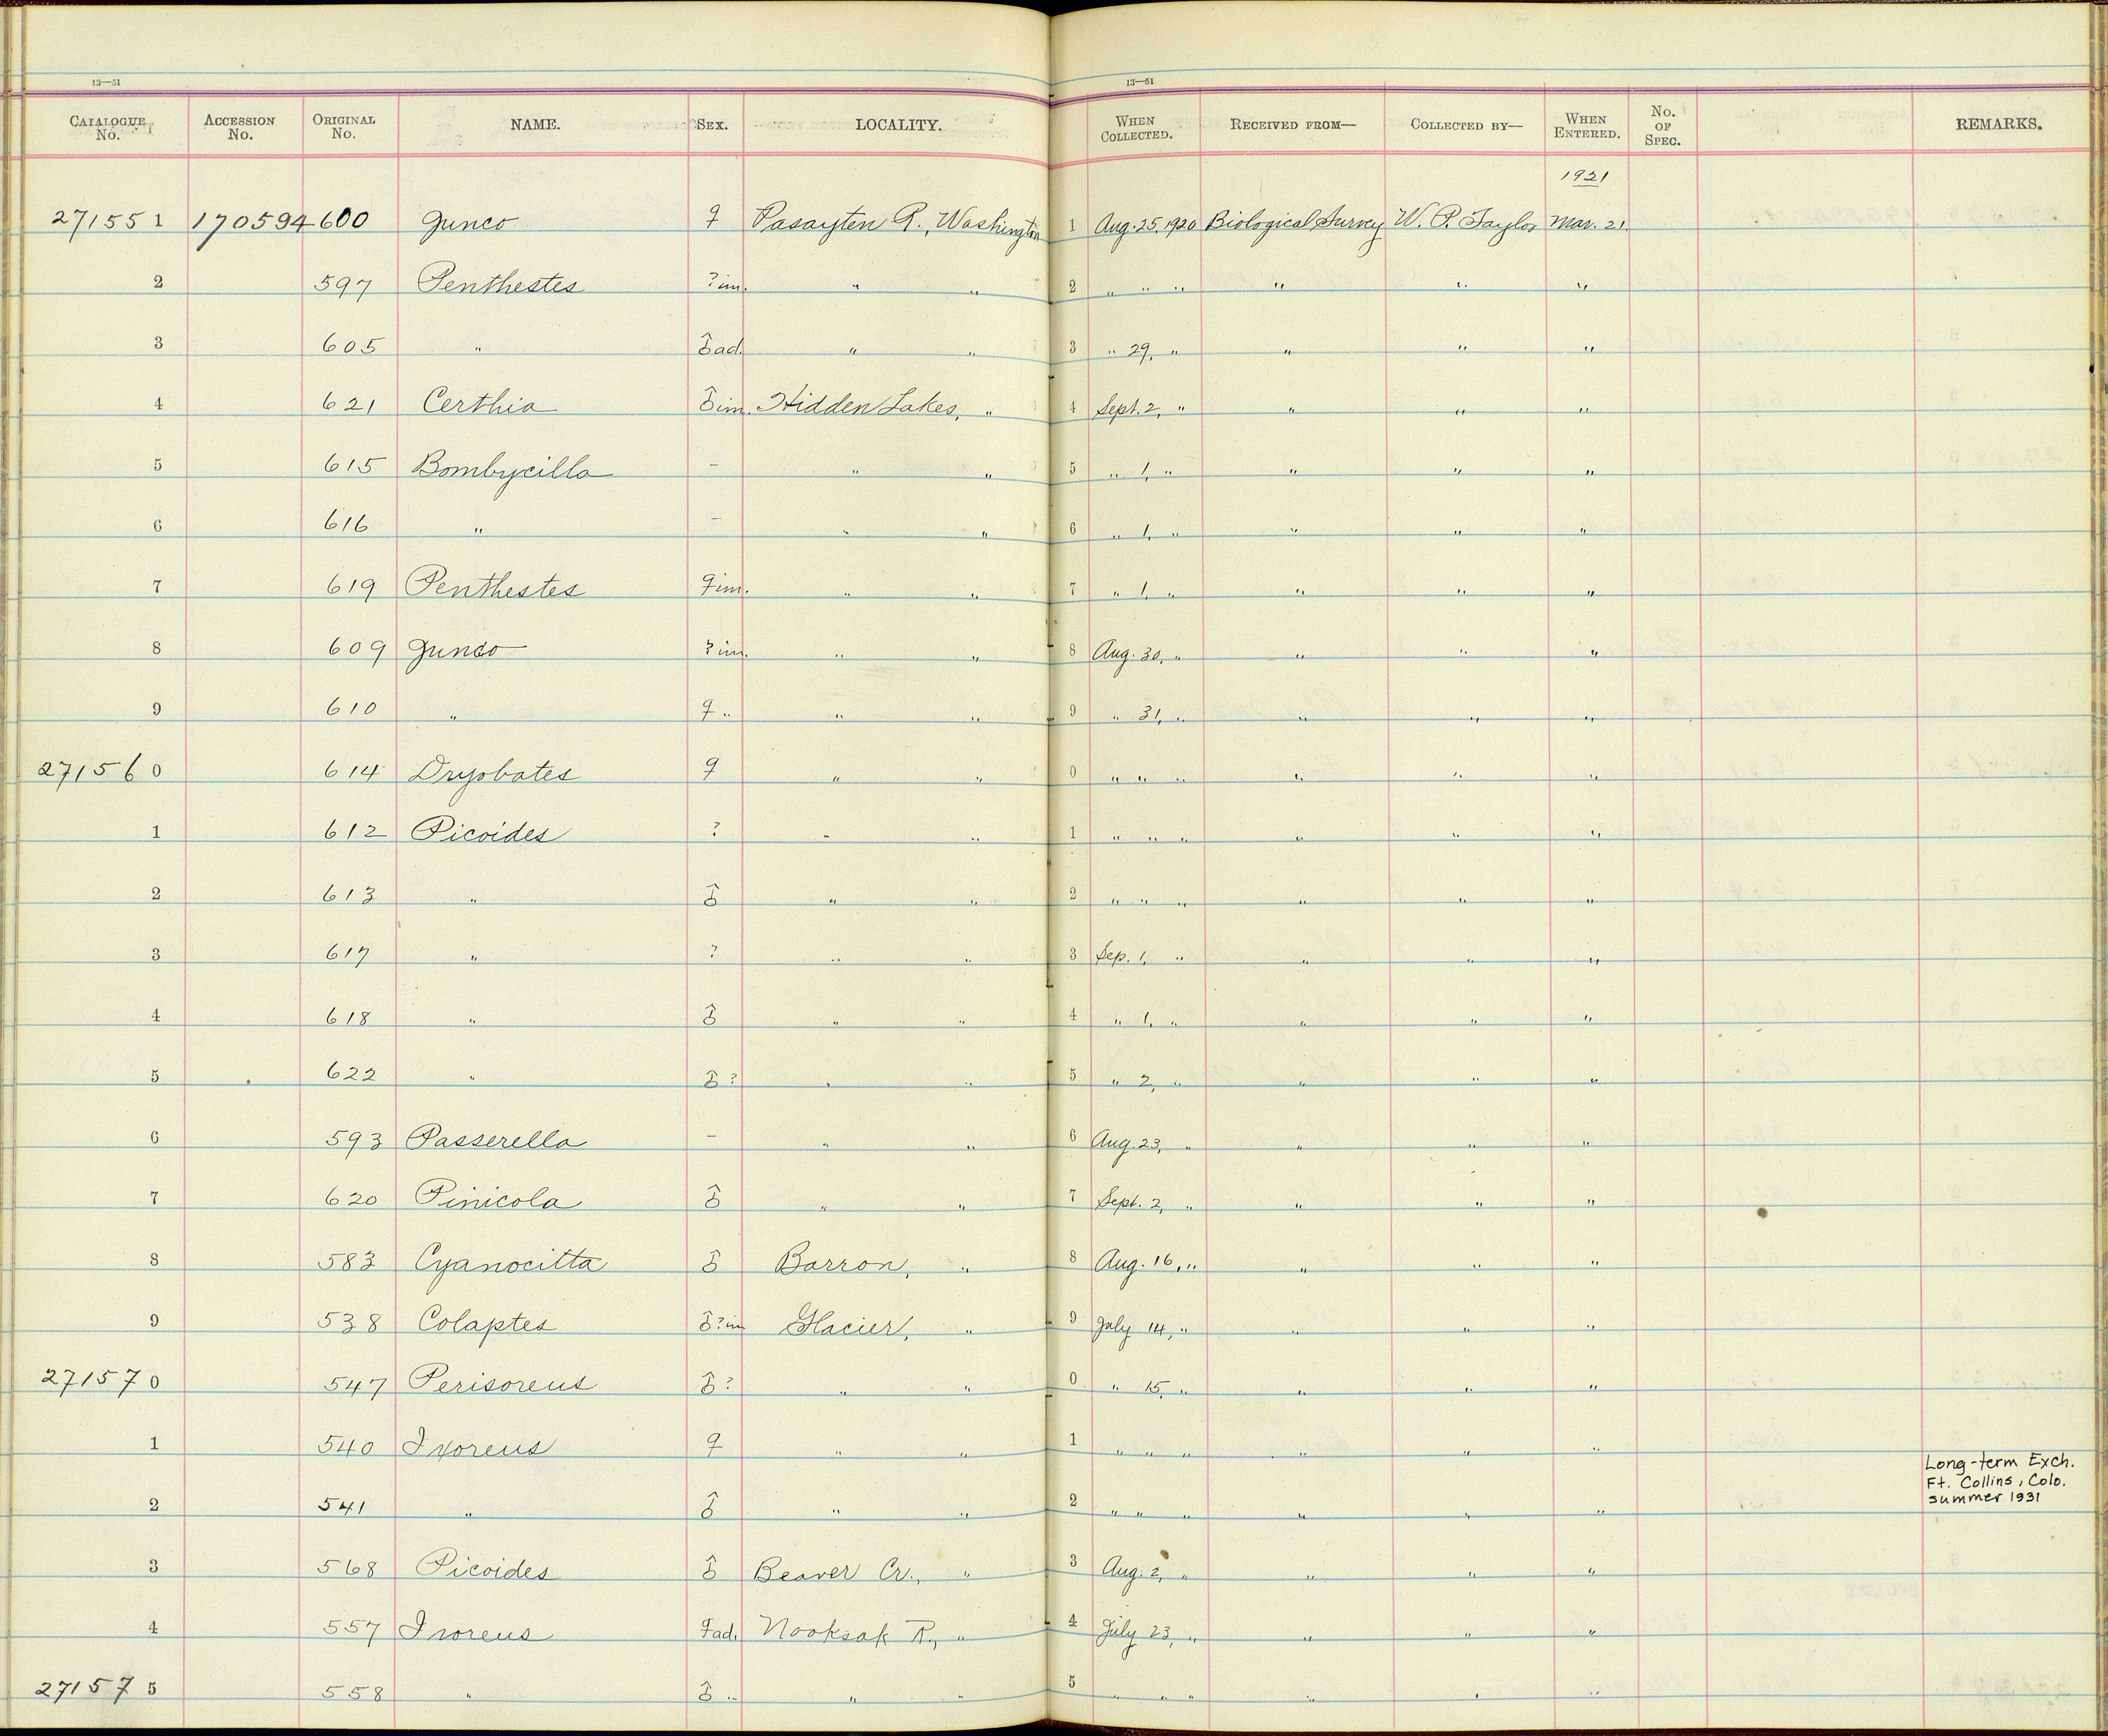 13—51 13—51
CATALOGUE No. ACCESSION No. ORIGINAL No. NAME. SEX. LOCALITY. WHEN COLLECTED. RECEIVED FROM— COLLECTED BY— WHEN ENTERED. No. OF SPEC. REMARKS.
1921
271551 170594 600 Junco ♀ Pasayten R., Washington 1 Aug. 25, 1920 Biological Survey W. P. Taylor Mar. 21.
2 597 Penthestes ? im. " " 2 " " " " " "
3 605 " ♂ ad. " " 3 " 29, " " " "
4 621 Certhia ♂ im. Hidden Lakes, " 4 Sept. 2, " " " "
5 615 Bombycilla – " " 5 " 1, " " " "
6 616 " – " " 6 " 1, " " " "
7 619 Penthestes ♀ im. " " 7 " 1, " " " "
8 609 Junco ? im. " " 8 Aug. 30, " " " "
9 610 " ♀ " " " 9 " 31, " " " "
271560 614 Dryobates ♀ " " 0 " " " " " "
1 612 Picoides ? " " 1 " " " " " "
2 613 " ♂ " " 2 " " " " " "
3 617 " ? " " 3 Sep. 1, " " " "
4 618 " ♂ " " 4 " 1, " " " "
5 622 " ♂ ? " " 5 " 2, " " " "
6 593 Passerella – " " 6 Aug. 23, " " " "
7 620 Pinicola ♂ " " 7 Sept. 2, " " " "
8 583 Cyanocitta ♂ Barron, " 8 Aug. 16, " " " "
9 538 Colaptes ♂ ? im Glacier, " 9 July 14, " " " "
271570 547 Perisoreus ♂ ? " " 0 " 15, " " " "
1 540 Ixoreus ♀ " " 1 " " " " " "
2 541 " ♂ " " 2 " " " " " " Long-term Exch.
Ft. Collins, Colo.
summer 1931
3 568 Picoides ♂ Beaver Cr., " 3 Aug. 2, " " " "
4 557 Ixoreus ♀ ad. Nooksak R., " 4 July 23, " " " "
271575 558 " ♂ " " " 5 " " " " " "